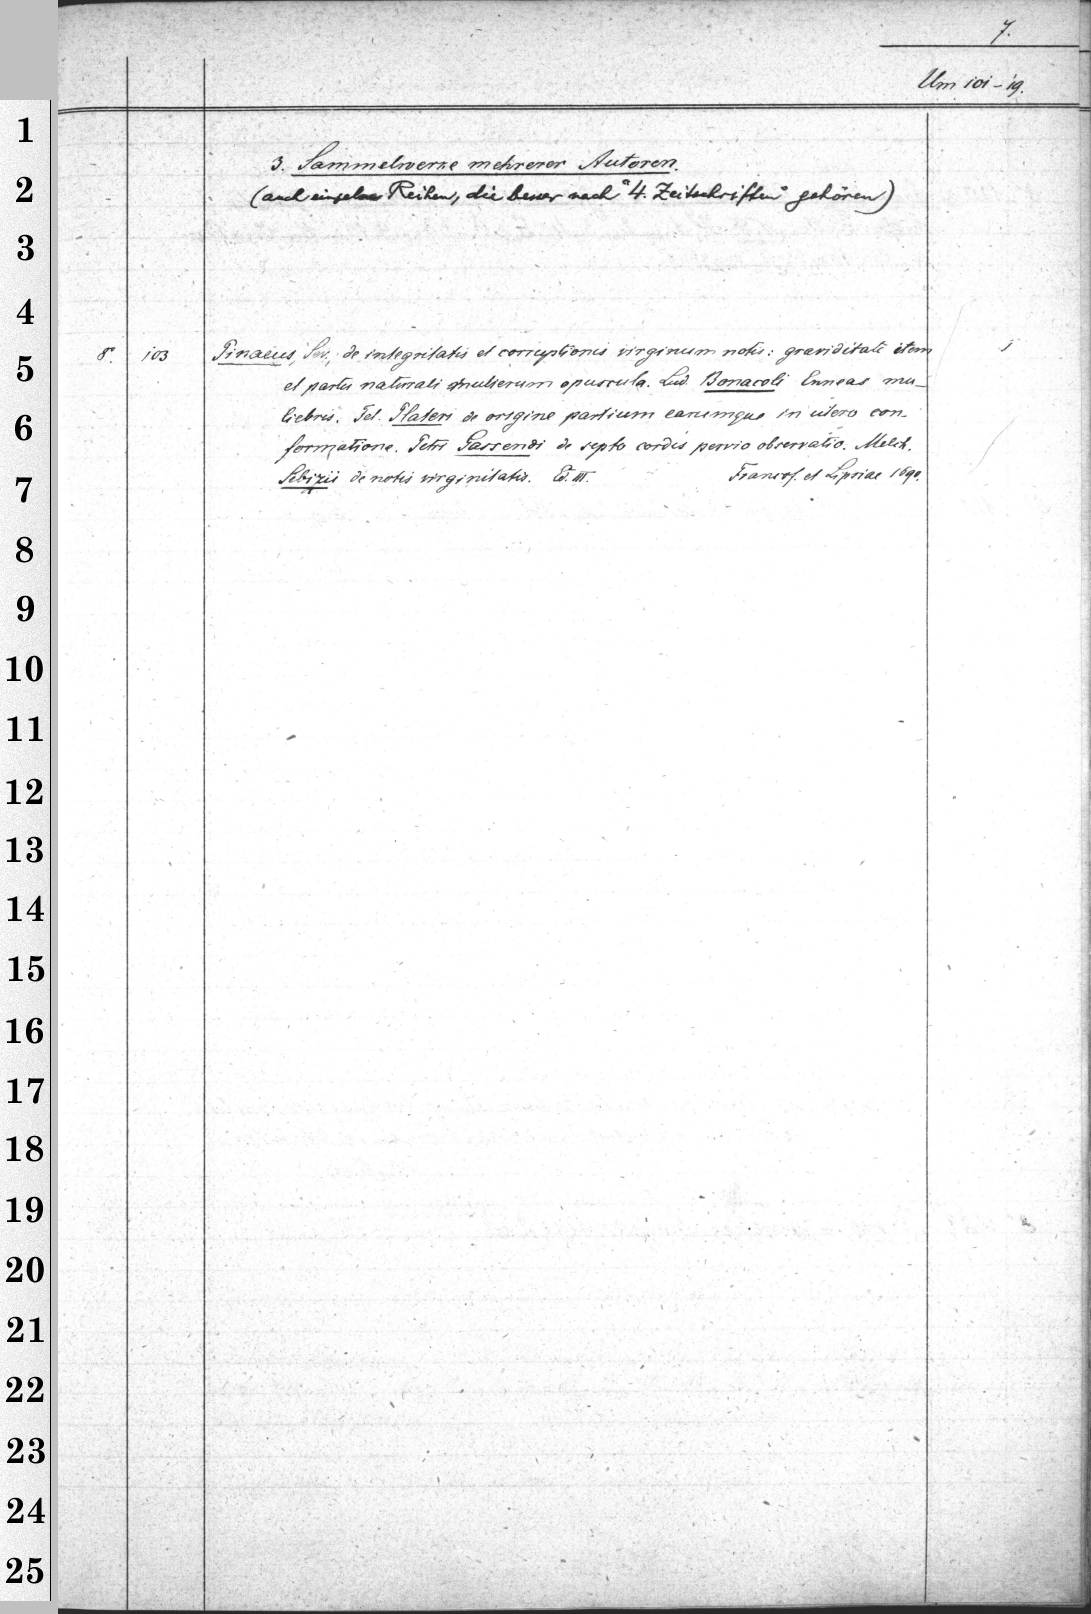 7.
Um 101-19.
3. Sammelwerke mehrerer Autoren.
(auch einzelne Reihen, die besser nach "4. Zeitschriften" gehören)
8° 103 Pinaeus, Sev., de integritatis et corruptionis virginum notis: graviditate item 1
et partu naturali mulierum opuscula. Lud. Bonacoli Enneas mu-
liebris. Fel. Plateri de origine partium earumque in utero con-
formatione. Petri Gassendi de septo cordis pervio observatio. Melch.
Sebizii de notis virginitatis. Ed. III. Francof. et Lipsiae 1690.
1
2
3
4
5
6
7
8
9
10
11
12
13
14
15
16
17
18
19
20
21
22
23
24
25